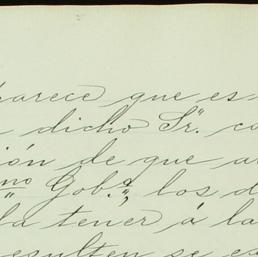 parece que es
dicho Sr. co
ión de que a
no Gob.a, los d
la tener á la
resulten se es